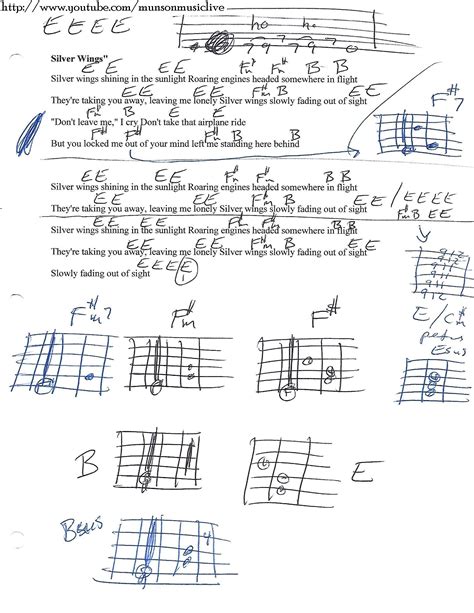 http://www.youtube.com/munsonmusiclive
E E E E
ho ho
7 9 7 9
Silver Wings"
E E E E F#m F#m B B
Silver wings shining in the sunlight Roaring engines headed somewhere in flight
E E E E F#m F#m B B E E
They're taking you away, leaving me lonely Silver wings slowly fading out of sight
F#m B E E
"Don't leave me," I cry Don't take that airplane ride
F#m F#m B B
But you locked me out of your mind left me standing here behind
F#7
E E E E F#m F#m B B
Silver wings shining in the sunlight Roaring engines headed somewhere in flight
E E E E F#m B E E / E E E E
They're taking you away, leaving me lonely Silver wings slowly fading out of sight
F#m B E E
E E E E F#m F#m B B
Silver wings shining in the sunlight Roaring engines headed somewhere in flight
E E E E F#m B E E
They're taking you away, leaving me lonely Silver wings slowly fading out of sight
E E E E
Slowly fading out of sight
F#m7
F#m
F#
E/C#
Esus
B
E
Bsus
4